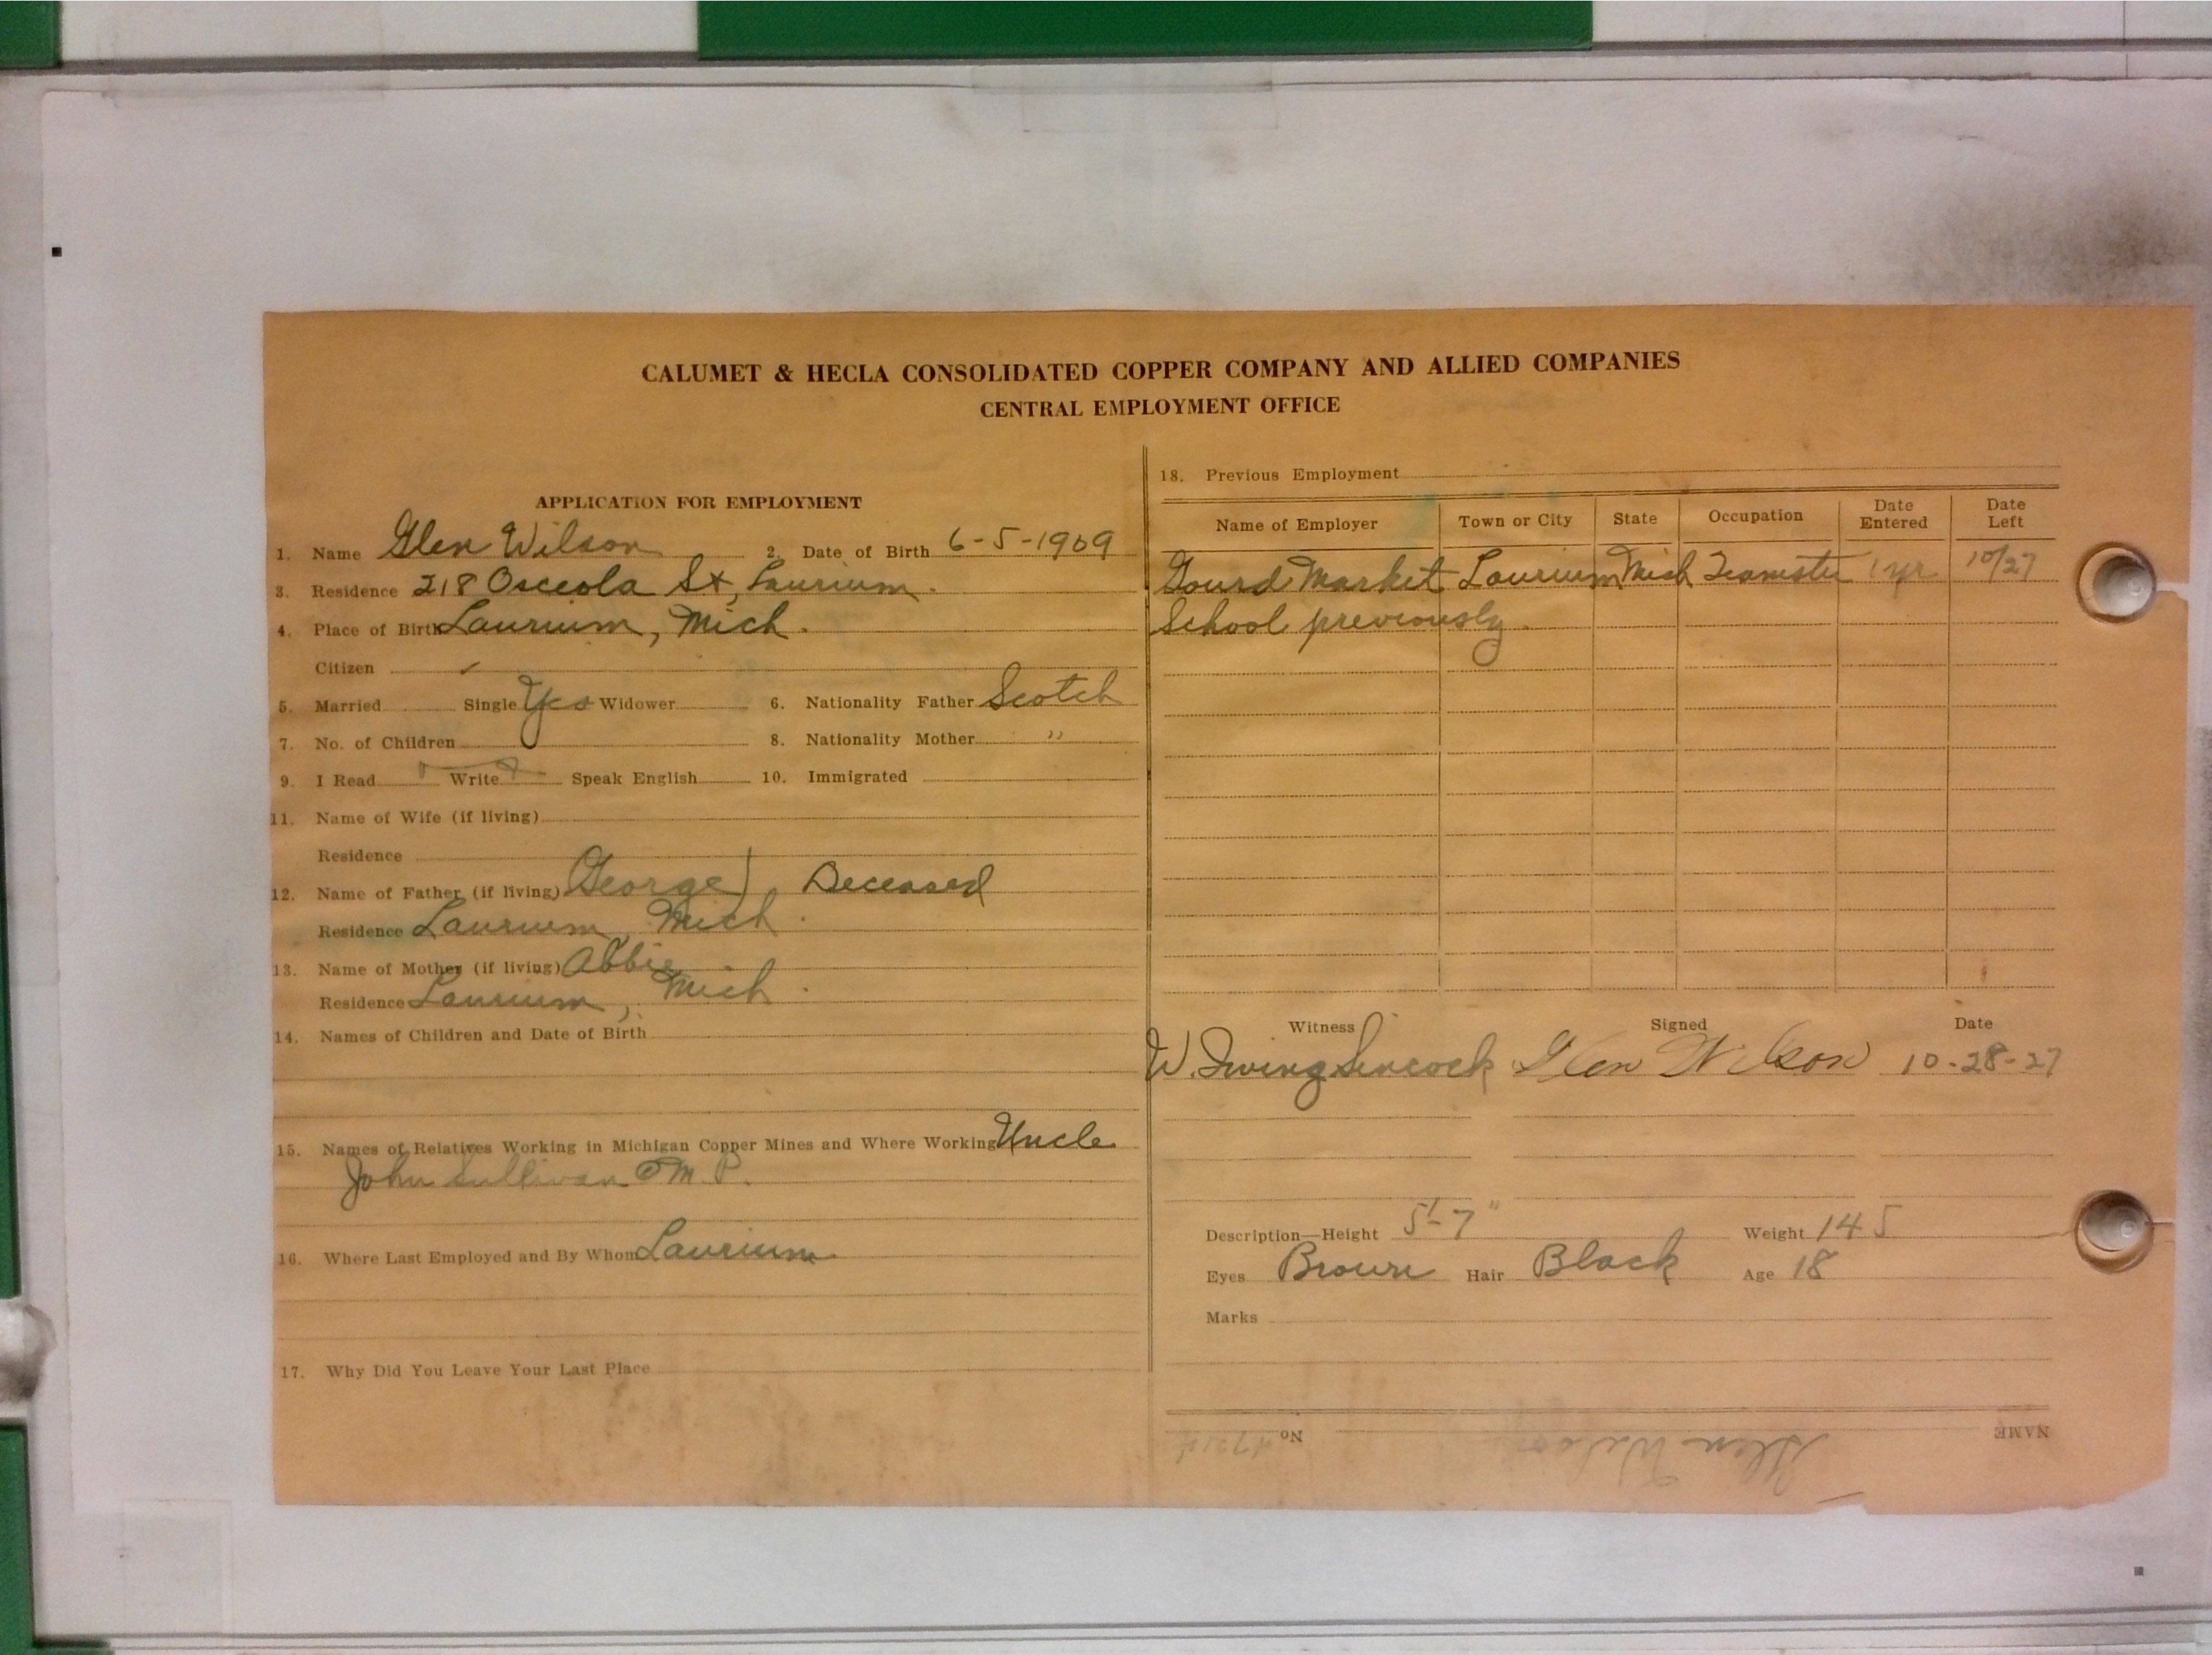 CALUMET & HECLA CONSOLIDATED COPPER COMPANY AND ALLIED COMPANIES
CENTRAL EMPLOYMENT OFFICE
APPLICATION FOR EMPLOYMENT
1. Name Glen Wilson 2. Date of Birth 6-5-1909
3. Residence 218 Osceola St, Laurium.
4. Place of Birth Laurium, Mich.
Citizen ✓
5. Married Single Yes Widower 6. Nationality Father Scotch
7. No. of Children 8. Nationality Mother "
9. I Read Write Speak English 10. Immigrated
11. Name of Wife (if living)
Residence
12. Name of Father (if living) George) Deceased
Residence Laurium, Mich.
13. Name of Mother (if living) Abbie
Residence Laurium, Mich.
14. Names of Children and Date of Birth
15. Names of Relatives Working in Michigan Copper Mines and Where Working Uncle
John Sullivan M. P.
16. Where Last Employed and By Whom Laurium
17. Why Did You Leave Your Last Place
18. Previous Employment
Name of Employer Town or City State Occupation Date Entered Date Left
Gourd Market Laurium Mich Teamster 1 yr 10/27
School previously.
Witness Signed Date
W. Irving Sincock Glen Wilson 10-28-27
Description—Height 5'-7" Weight 145
Eyes Brown Hair Black Age 18
Marks
NAME Glen Wilson No